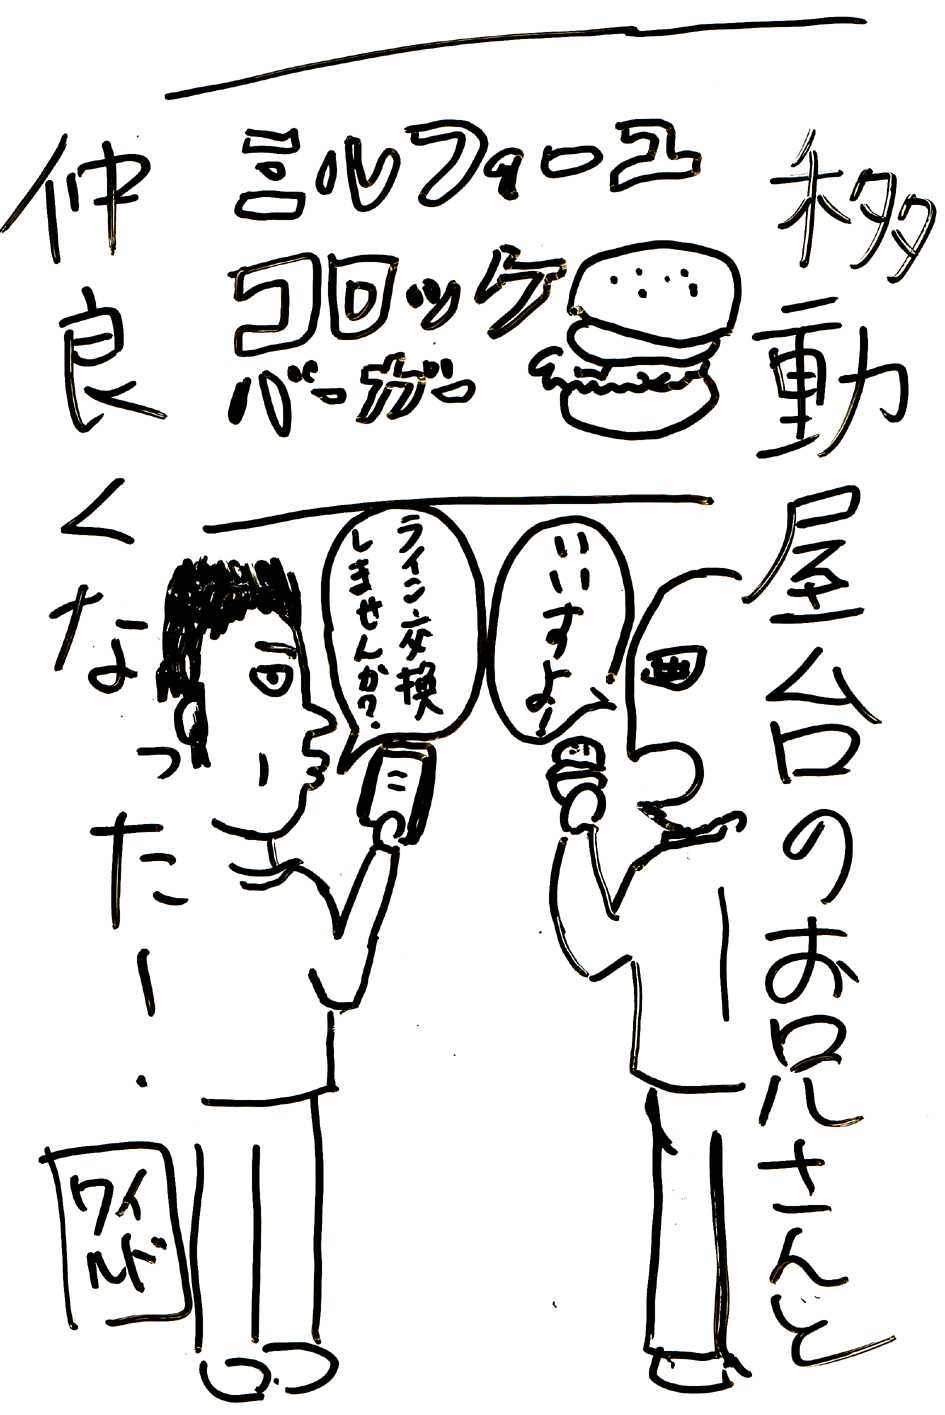 移動屋台のお兄さんと
仲良くなった！
ミルフィーユ
コロッケ
バーガー
いいすよ！
ライン交換
しませんか？
ワイ
ルド